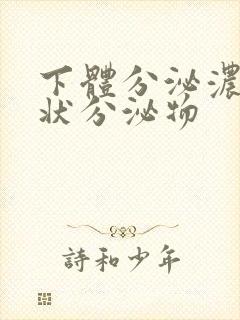 下體分泌濃
狀分泌物
詩和少年